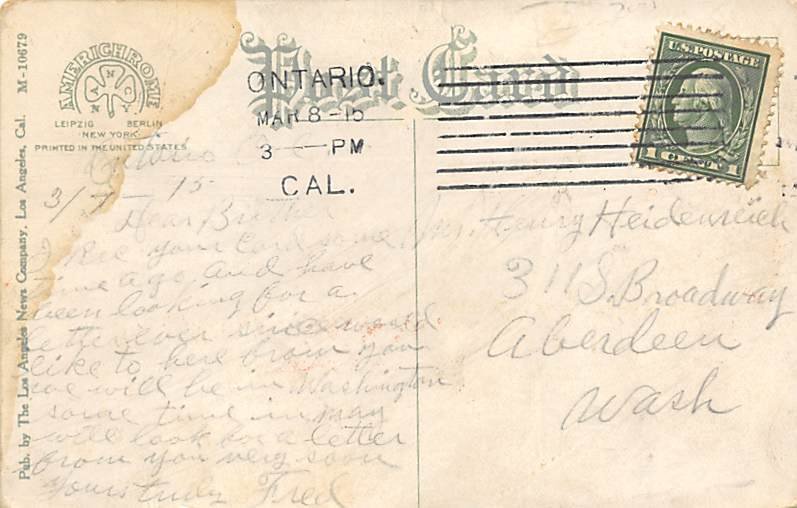 Pub. by The Los Angeles News Company, Los Angeles, Cal. M-10679
AMERICHROME
ANNCO
LEIPZIG BERLIN
NEW YORK
PRINTED IN THE UNITED STATES
Post Card
ONTARIO.
MAR 8-15
3 — PM
CAL.
U.S. POSTAGE
1 CENT 1
Ontario Cal
3/7 - 15
Dear Brother
I Rec your Card some
time ago and have
been looking for a
letter ever since would
like to here from you
we will be in Washington
some time in may
will look for a letter
from you very soon
Yours truly Fred
Mr. Henry Heidenreich
311 S. Broadway
Aberdeen
Wash